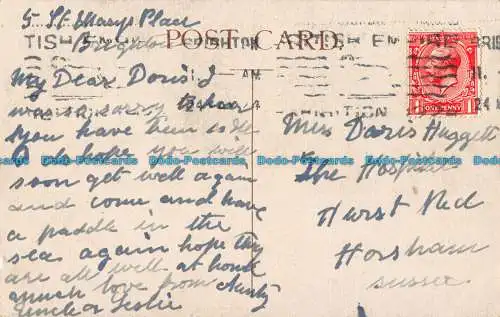 5 St Marys Place
Brighton
POST CARD.
TISH EM
BRIGHTON
My Dear Doris I
was so sorry to hear
you have been so ill
and hope you will
soon get well again
and come and have
a paddle in the
sea again hope they
are all well at home
much love from Aunty
Uncle & Leslie
Miss Doris Huggett
The Hospital
Hurst Rd
Horsham
Sussex
ONE PENNY
Dodo-Postcards Dodo-Postcards Dodo-Postcards Dodo-Postcards